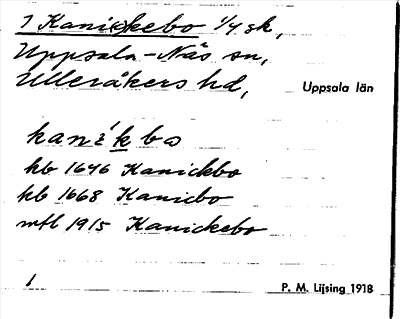 1 Kani(c)kebo 1/4 sk,
Uppsala-Näs sn,
Ulleråkers hd, Uppsala län
kanikbo
hb 1646 Kanickbo
hb 1668 Kanicbo
mtl 1915 Kanickebo
1 P. M. Lijsing 1918